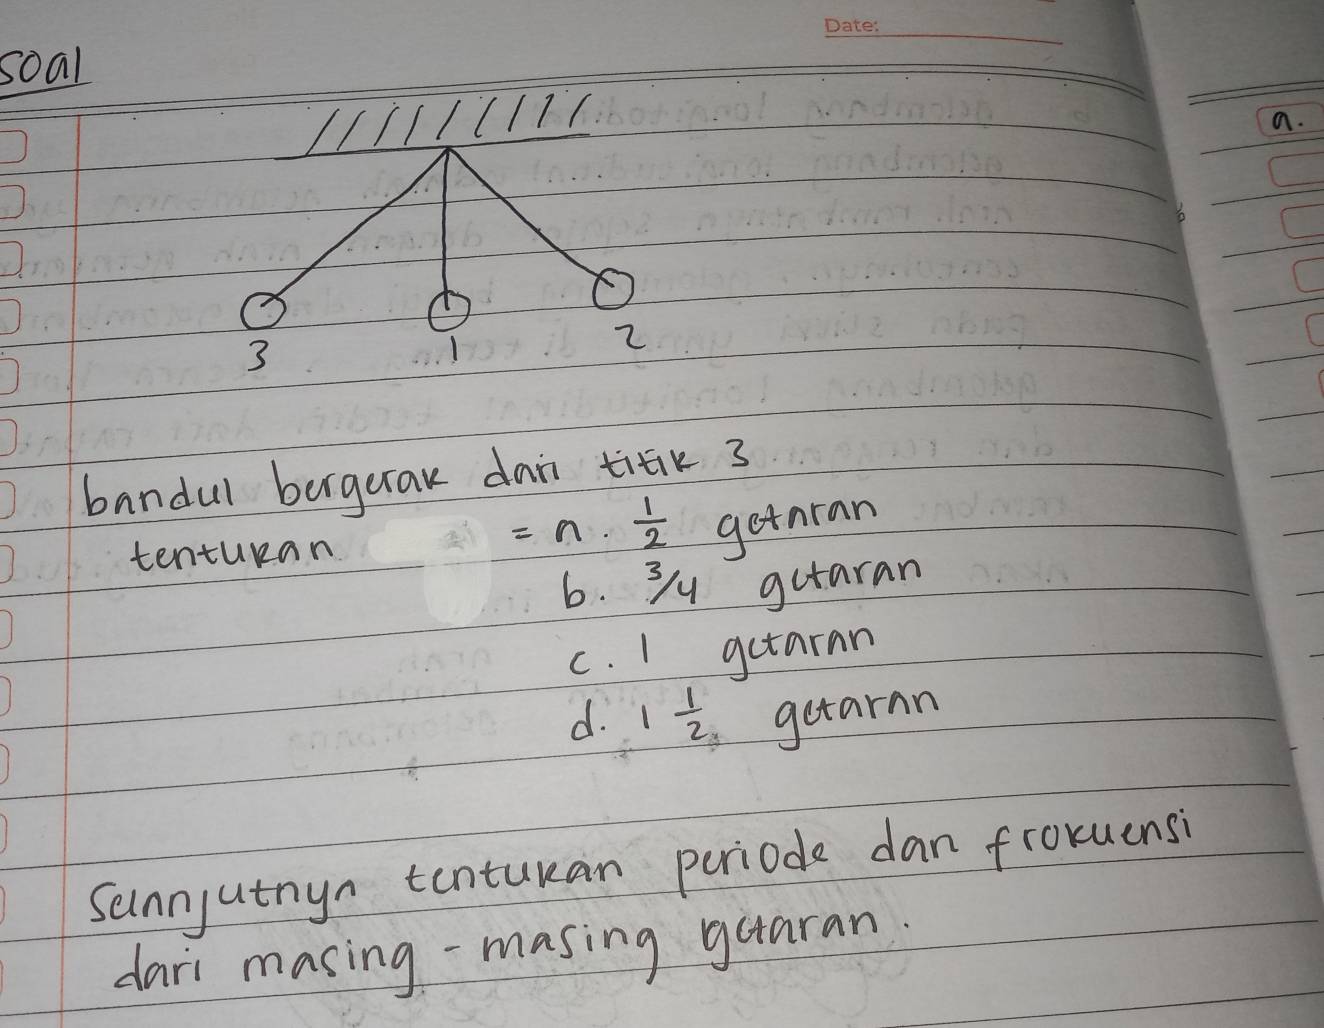 Date:
soal
a.
3
1
2
bandul bergerak dari titik 3
tentukan = a. 1/2 getaran
b. 3/4 getaran
c. 1 getaran
d. 1 1/2 getaran
Selanjutnya tentukan periode dan frekuensi
dari masing-masing getaran.